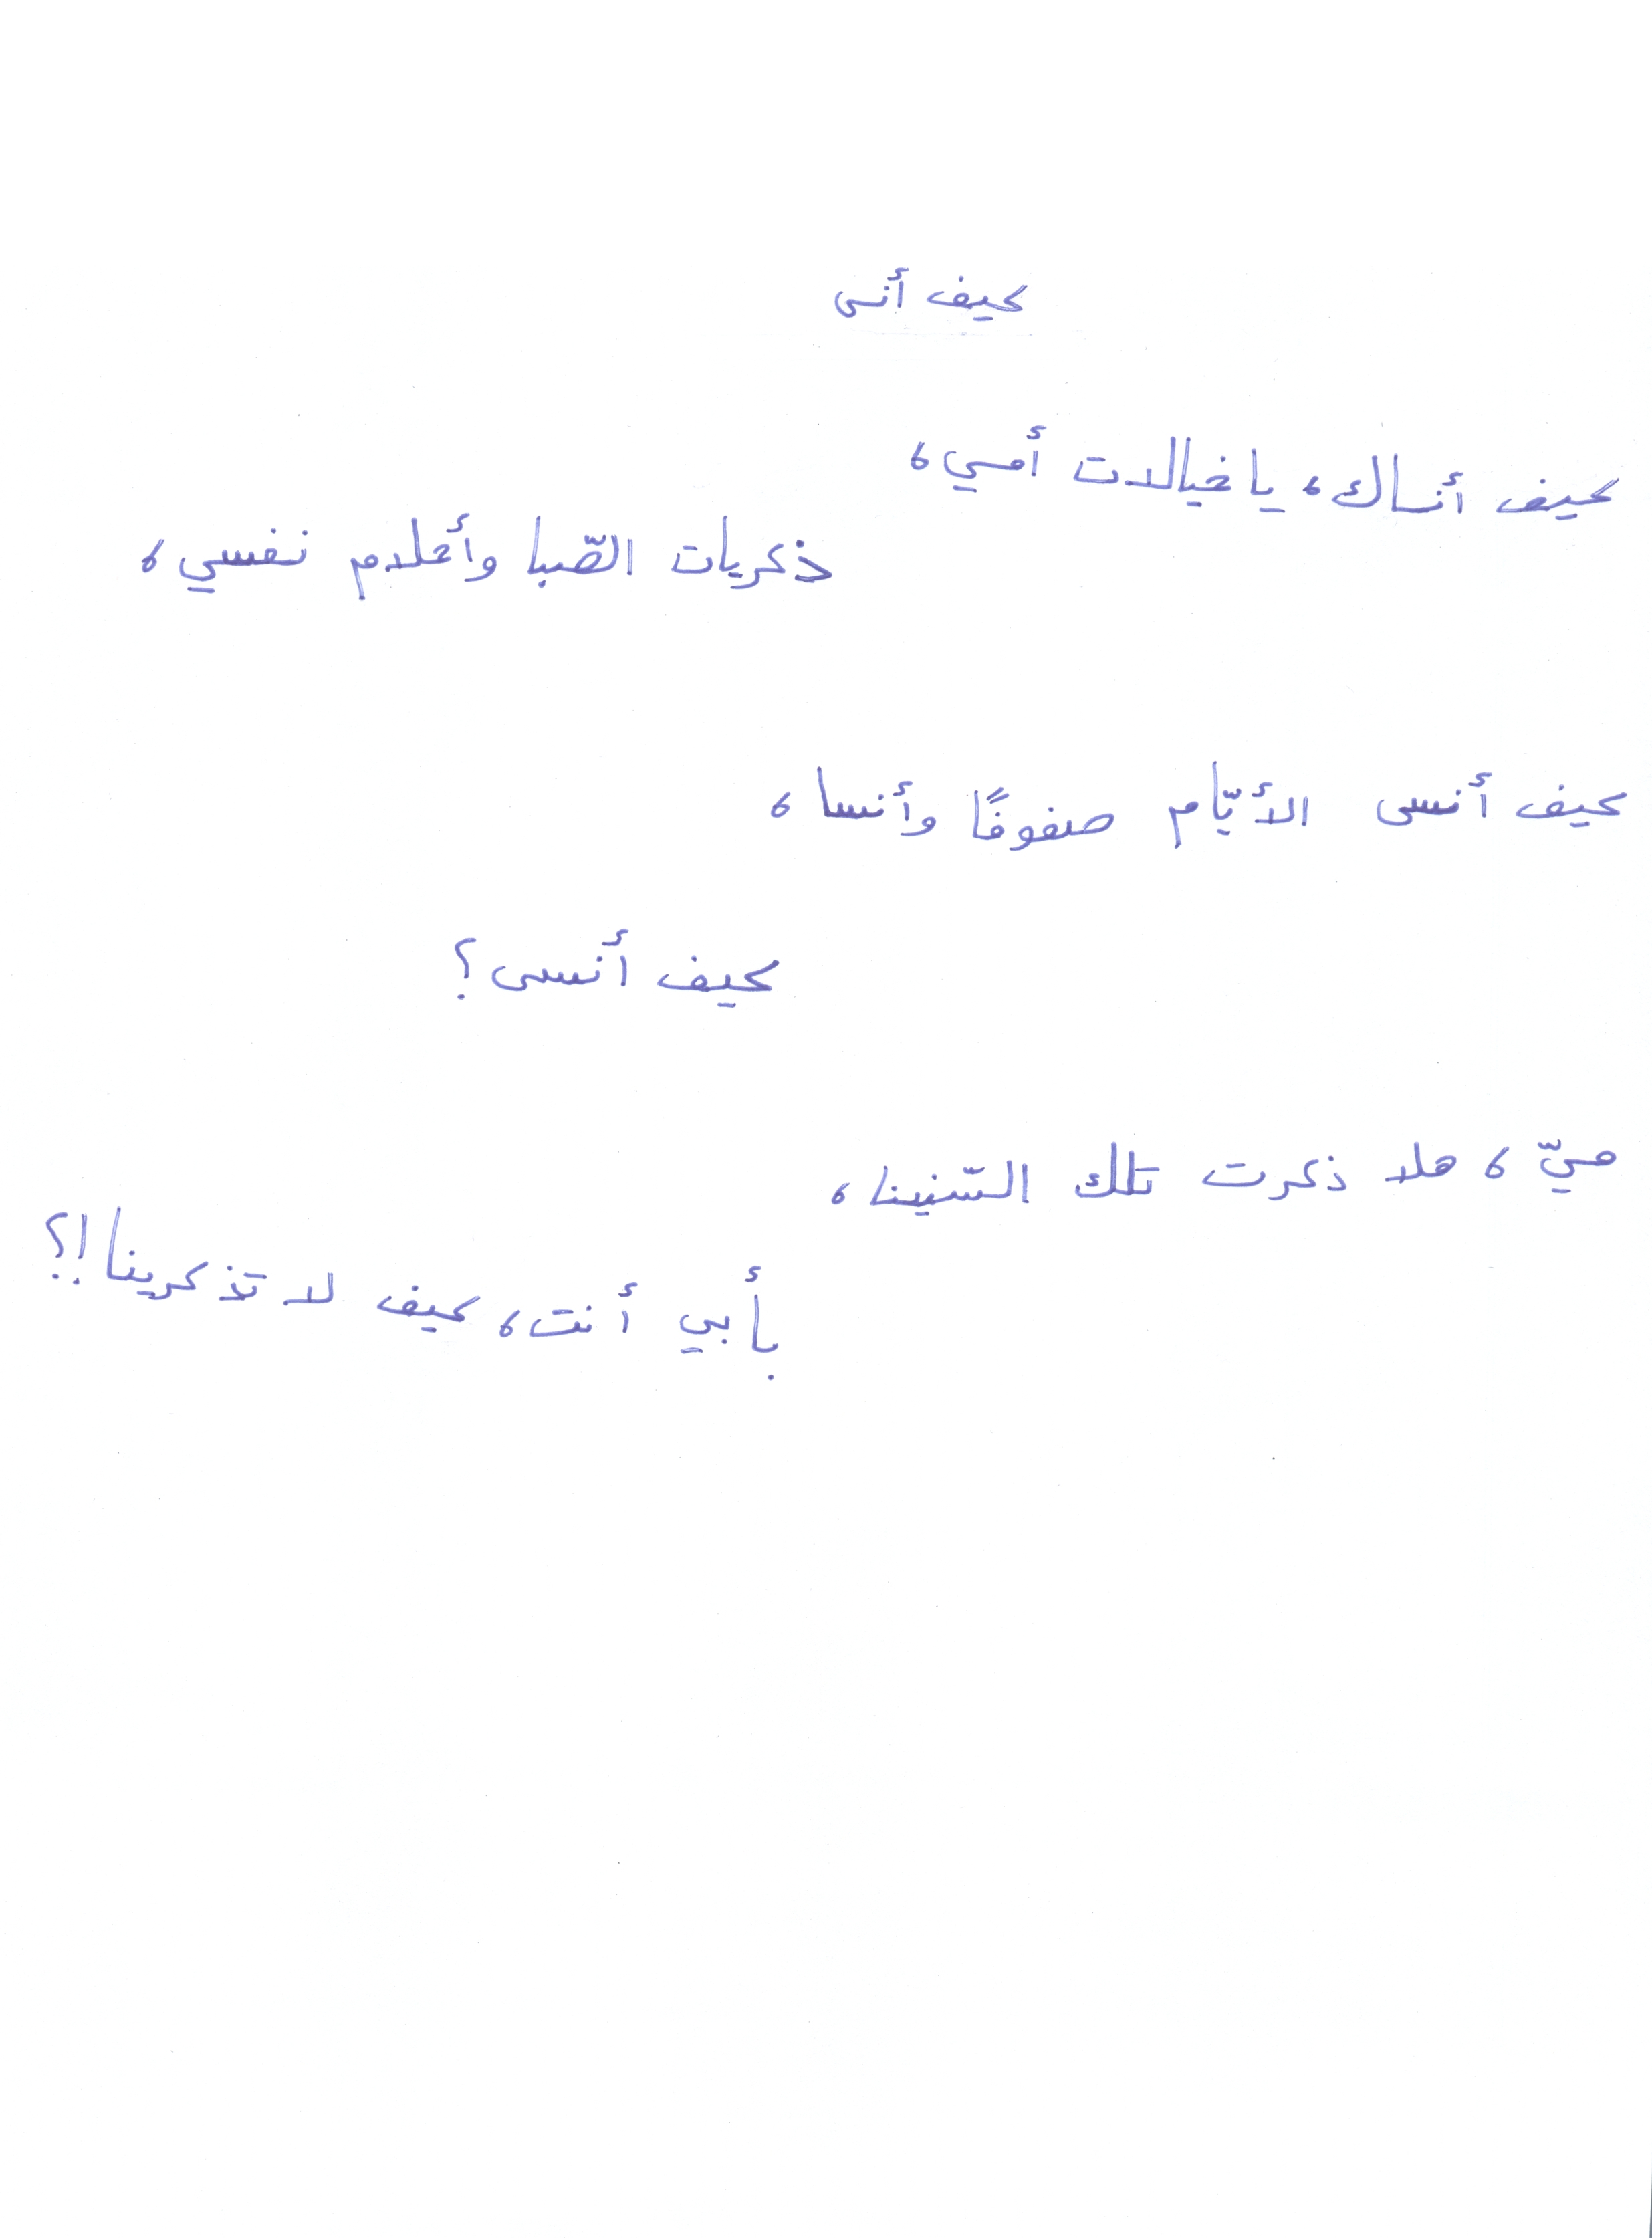 كيف أنسى
كيف أنساك، يا خيالات أمسي،
ذكريات الصّبا وأحلام نفسي،
كيف أنسى الأيّام صفوفًا وأنسا،
كيف أنسى؟
ميّ، هلا ذكرت تلك السّنينا،
بأبي أنت، كيف لا تذكرينا!؟